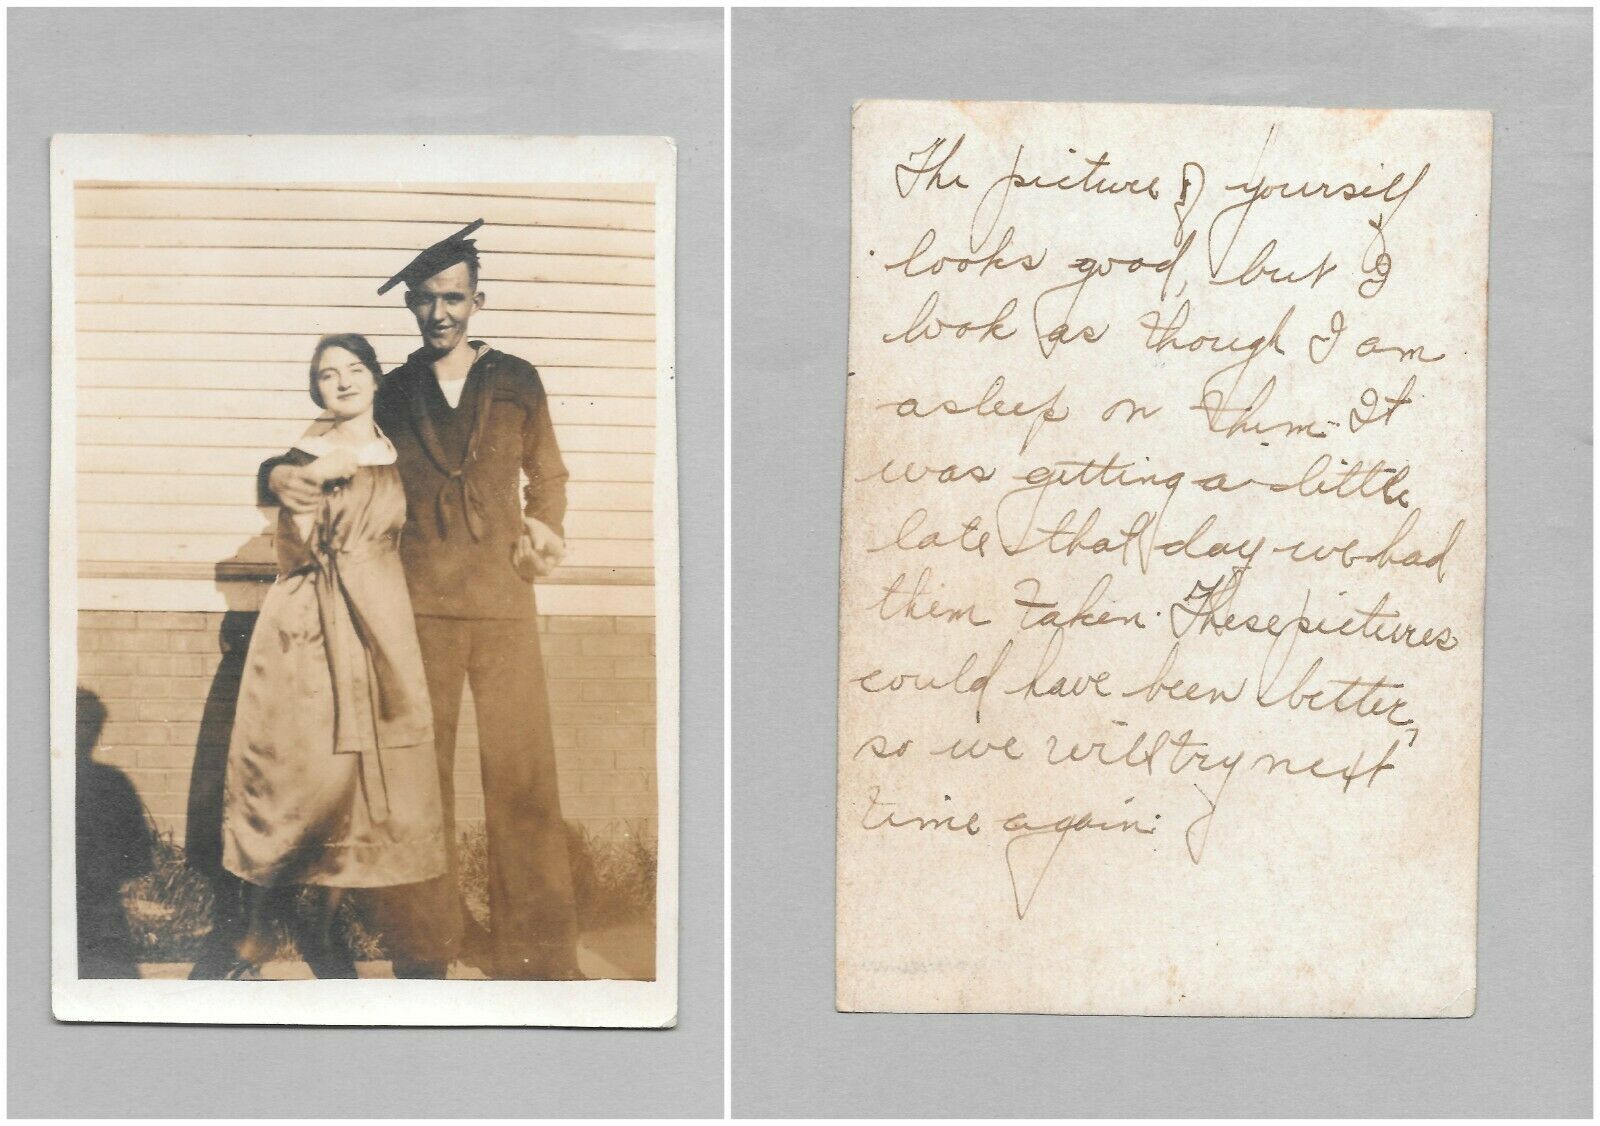 The picture of yourself
looks good, but I
look as though I am
asleep on them. It
was getting a little
late that day we had
them taken. These pictures
could have been better,
so we will try next
time again.